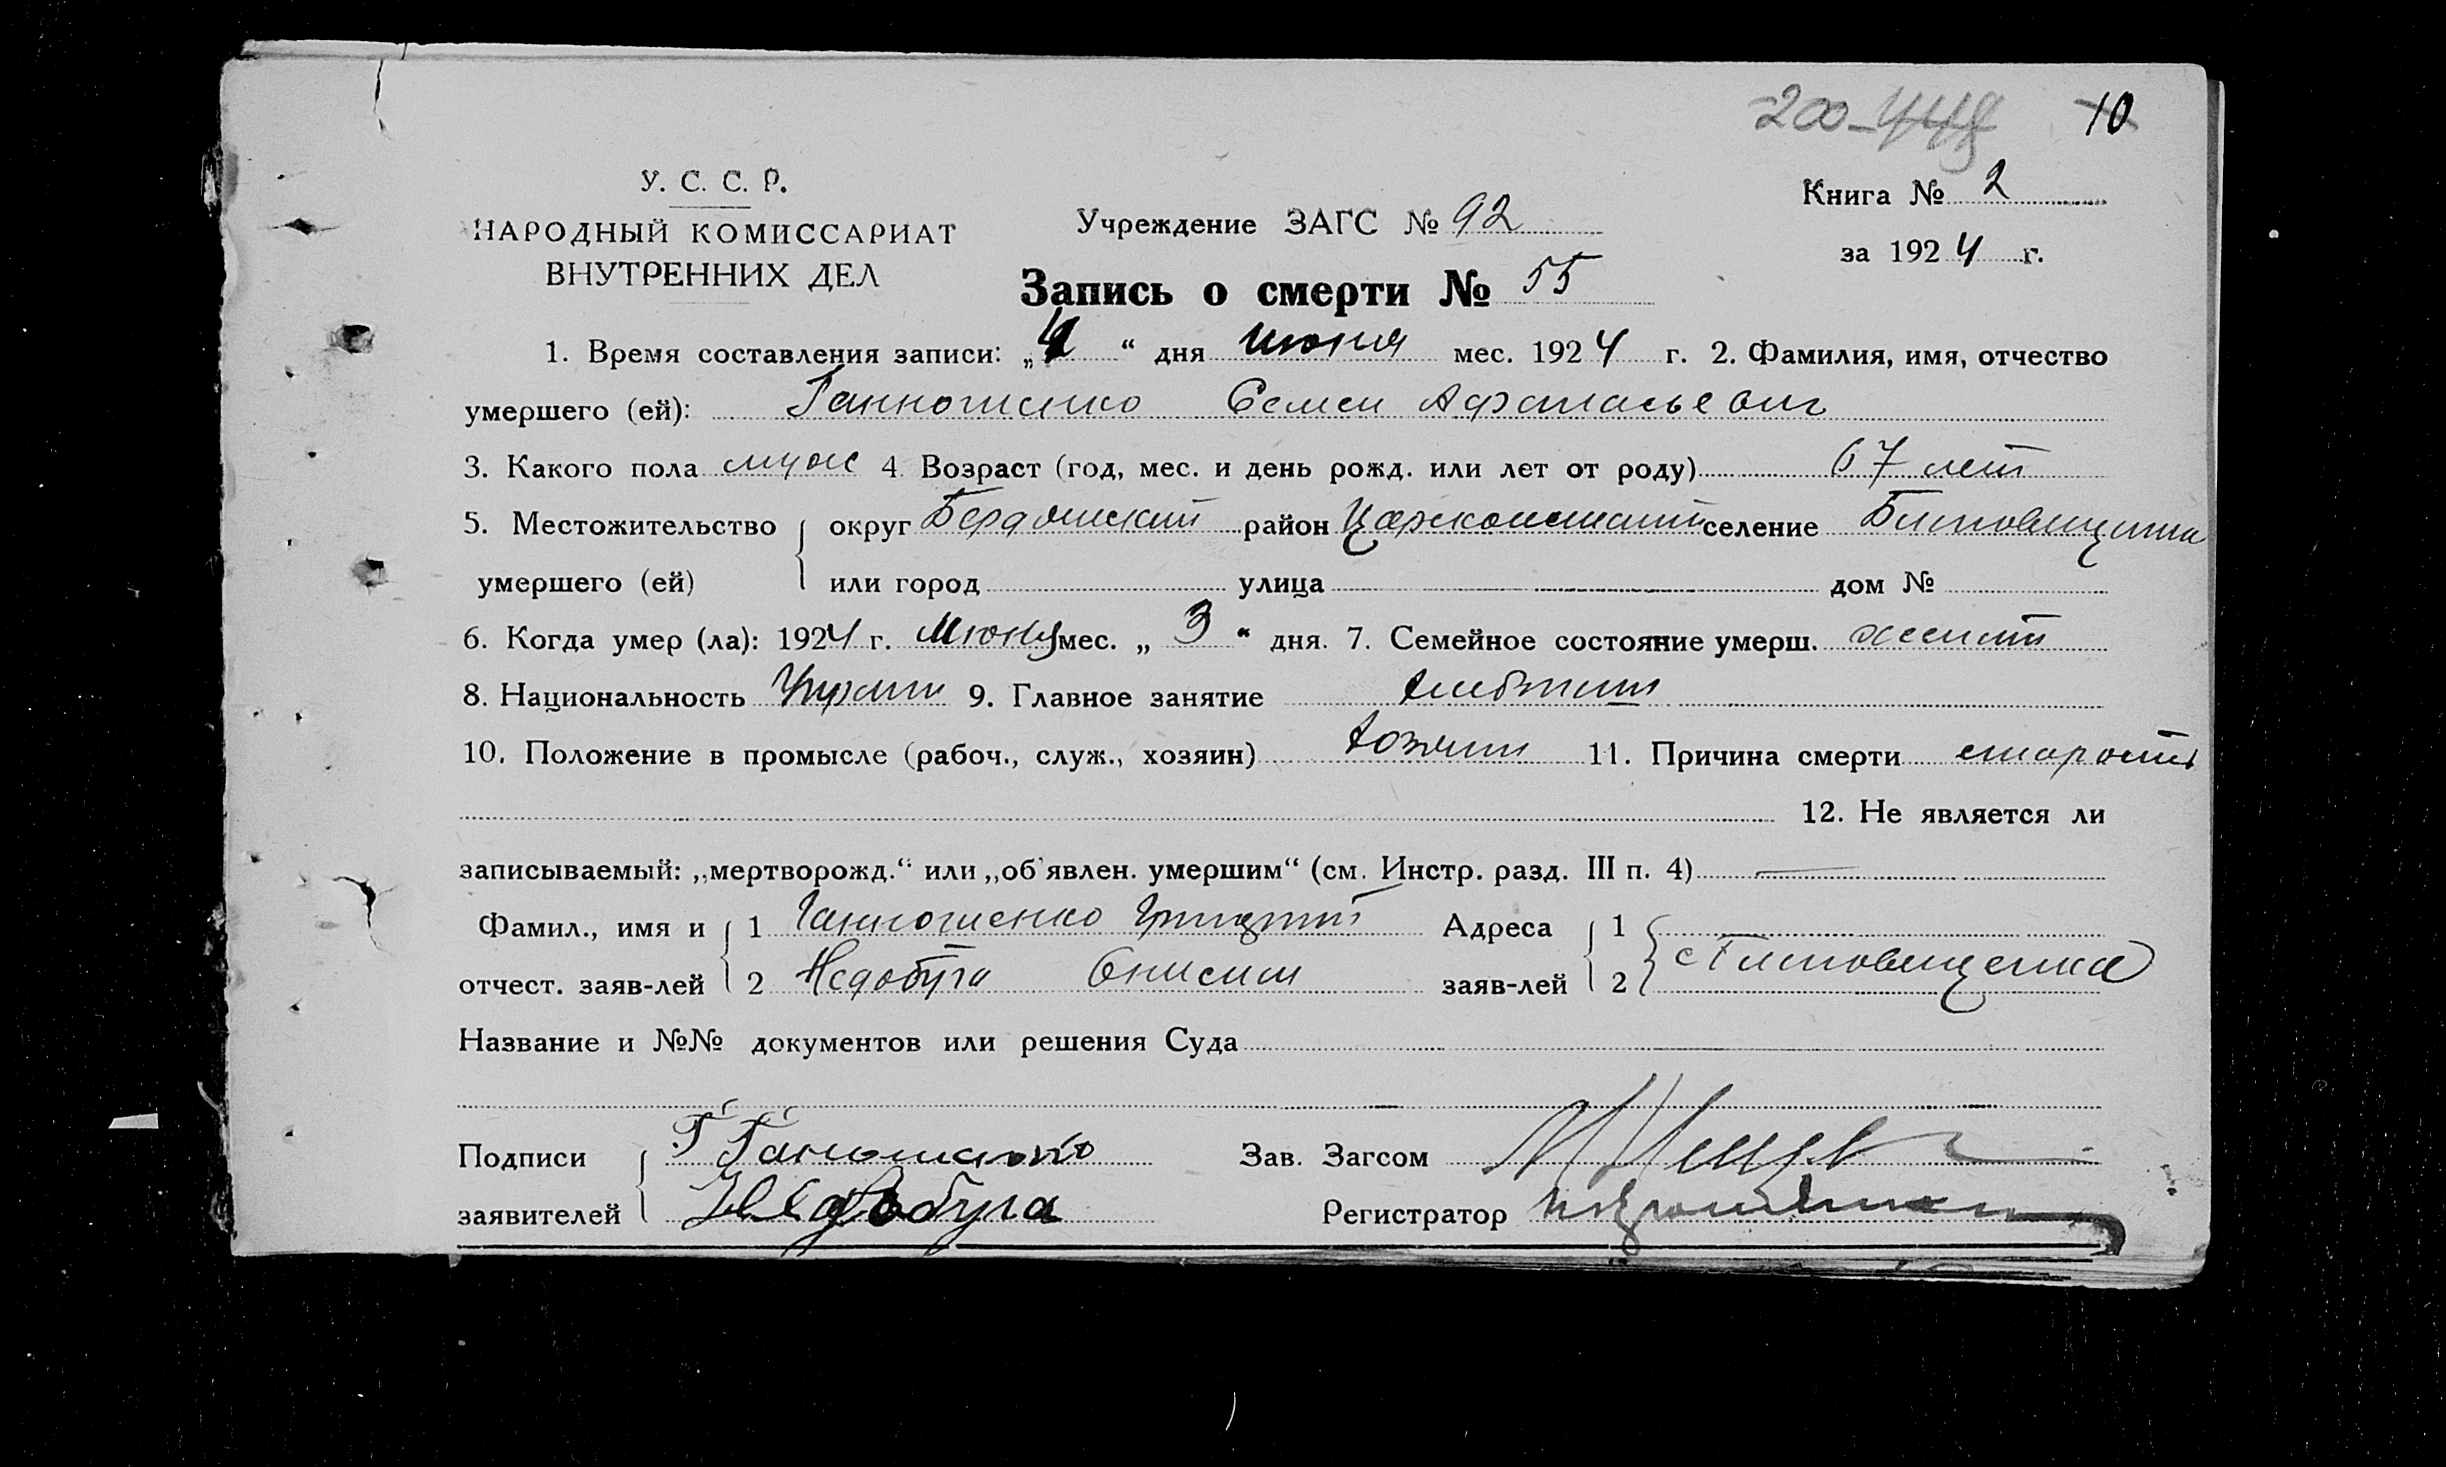 200-448 10
У. С. С. Р.
НАРОДНЫЙ КОМИССАРИАТ
ВНУТРЕННИХ ДЕЛ
Учреждение ЗАГС № 92
Книга № 2
за 1924 г.
Запись о смерти № 55
1. Время составления записи: „4“ дня июня мес. 1924 г. 2. Фамилия, имя, отчество
умершего (ей): Ганношенко Семен Афанасьевич
3. Какого пола муж 4. Возраст (год, мес. и день рожд. или лет от роду) 67 лет
5. Местожительство округ Бердянский район Царконстант селение
умершего (ей) или город улица дом №
6. Когда умер (ла): 1924 г. Июня мес. „3“ дня. 7. Семейное состояние умерш. женат
8. Национальность Украин 9. Главное занятие хлебопаш
10. Положение в промысле (рабоч., служ., хозяин) хозяин 11. Причина смерти старость
12. Не является ли
записываемый: „мертворожд.“ или „об'явлен. умершим“ (см. Инстр. разд. III п. 4) —
Фамил., имя и 1 Ганношенко Григорий Адреса 1
отчест. заяв-лей 2 Недобуга Онисим заяв-лей 2
Название и №№ документов или решения Суда
Подписи Г Ганошенко Зав. Загсом
заявителей Недобуга Регистратор